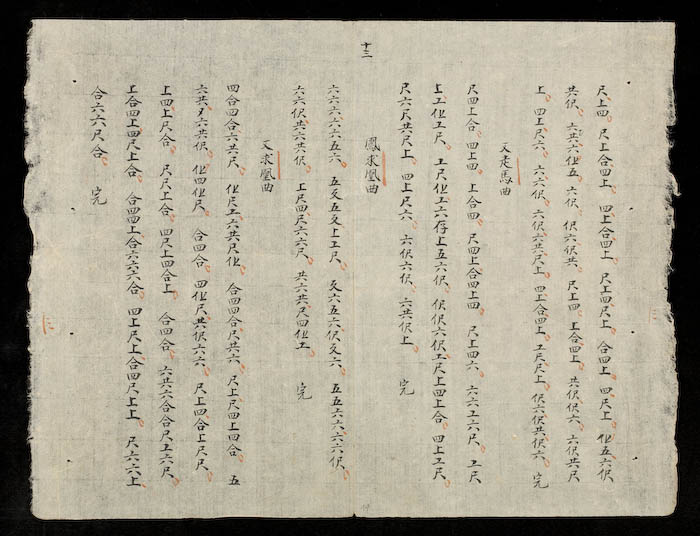 尺上四 尺上合四上 四上合四上 尺上四尺上 合四上 四尺上 仜五六伬
共伬 六共六仜五 六伬 伬六伬共 尺上四 上合四上 共伬伬六 六伬共尺
上 四上尺六 六六伬 六伬六共尺上 四上合四上 工尺尺上 伬六伬共伬六 完
又走馬曲
尺四上合 四上四 上合四 尺四上合四上四 尺上四六 六六工六尺 工尺
上工仜工尺 工尺仜工六存上五六伬 伬伬六伬工尺上四上合 四上工尺
尺六尺共尺上 四上尺六 六伬六伬 六共伬上 完
鳳求凰曲
十三
六六六六六五六 五㐅五㐅上工尺 㐅六五六伬㐅六 五五六六六六伬
六六伬共六共伬 上尺四尺六六尺 共六共尺四仜工 完
又求凰曲
四合四合六共尺 仜尺工六共尺仜 合四四合尺共六 尺上尺四上四合 五
六共六共伬 仜四仜尺 合四合 四仜尺共伬六六 尺上四合上尺尺
上四上尺合 尺尺上合 四尺上四合上 合四合 六共六合合尺工六尺
上合四上四尺上合 合四四上合六六六合 四上尺上合四尺上上 尺六六上
合六六尺合 完